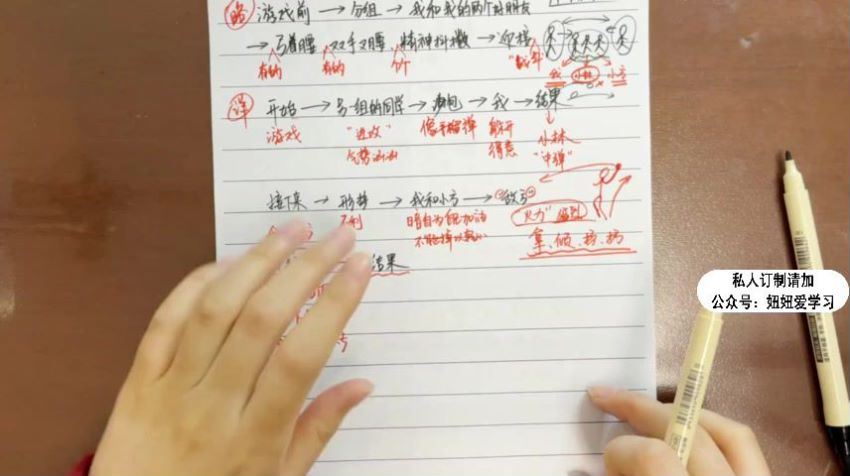 略 游戏前 → 分组 → 我和我的两个好朋友
→ 弓着腰 双手叉腰 精神抖擞 → 迎接
有的 有的 个个 "战斗"
我 小林 小方
详 开始 → 另一组的同学 → 沙包 → 我 → 结果
游戏 "进攻" 像手榴弹 躲开 小林
气势汹汹 得意 "中弹"
接下来 → 形势 → 我和小方 → "敌方"
不利 暗自为自己加油 "火力" 猛烈
拿、倾、挤、扔
结果
私人订制请加
公众号：妞妞爱学习